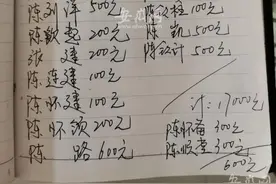 陈刘洋 500元
陈敏起 200元
张建 200元
陈连建 100元
陈怀建 100元
陈怀领 200元
陈路 600元
100元
陈凯 500元
500元
计：17000元
陈怀备 300元
300元
600元